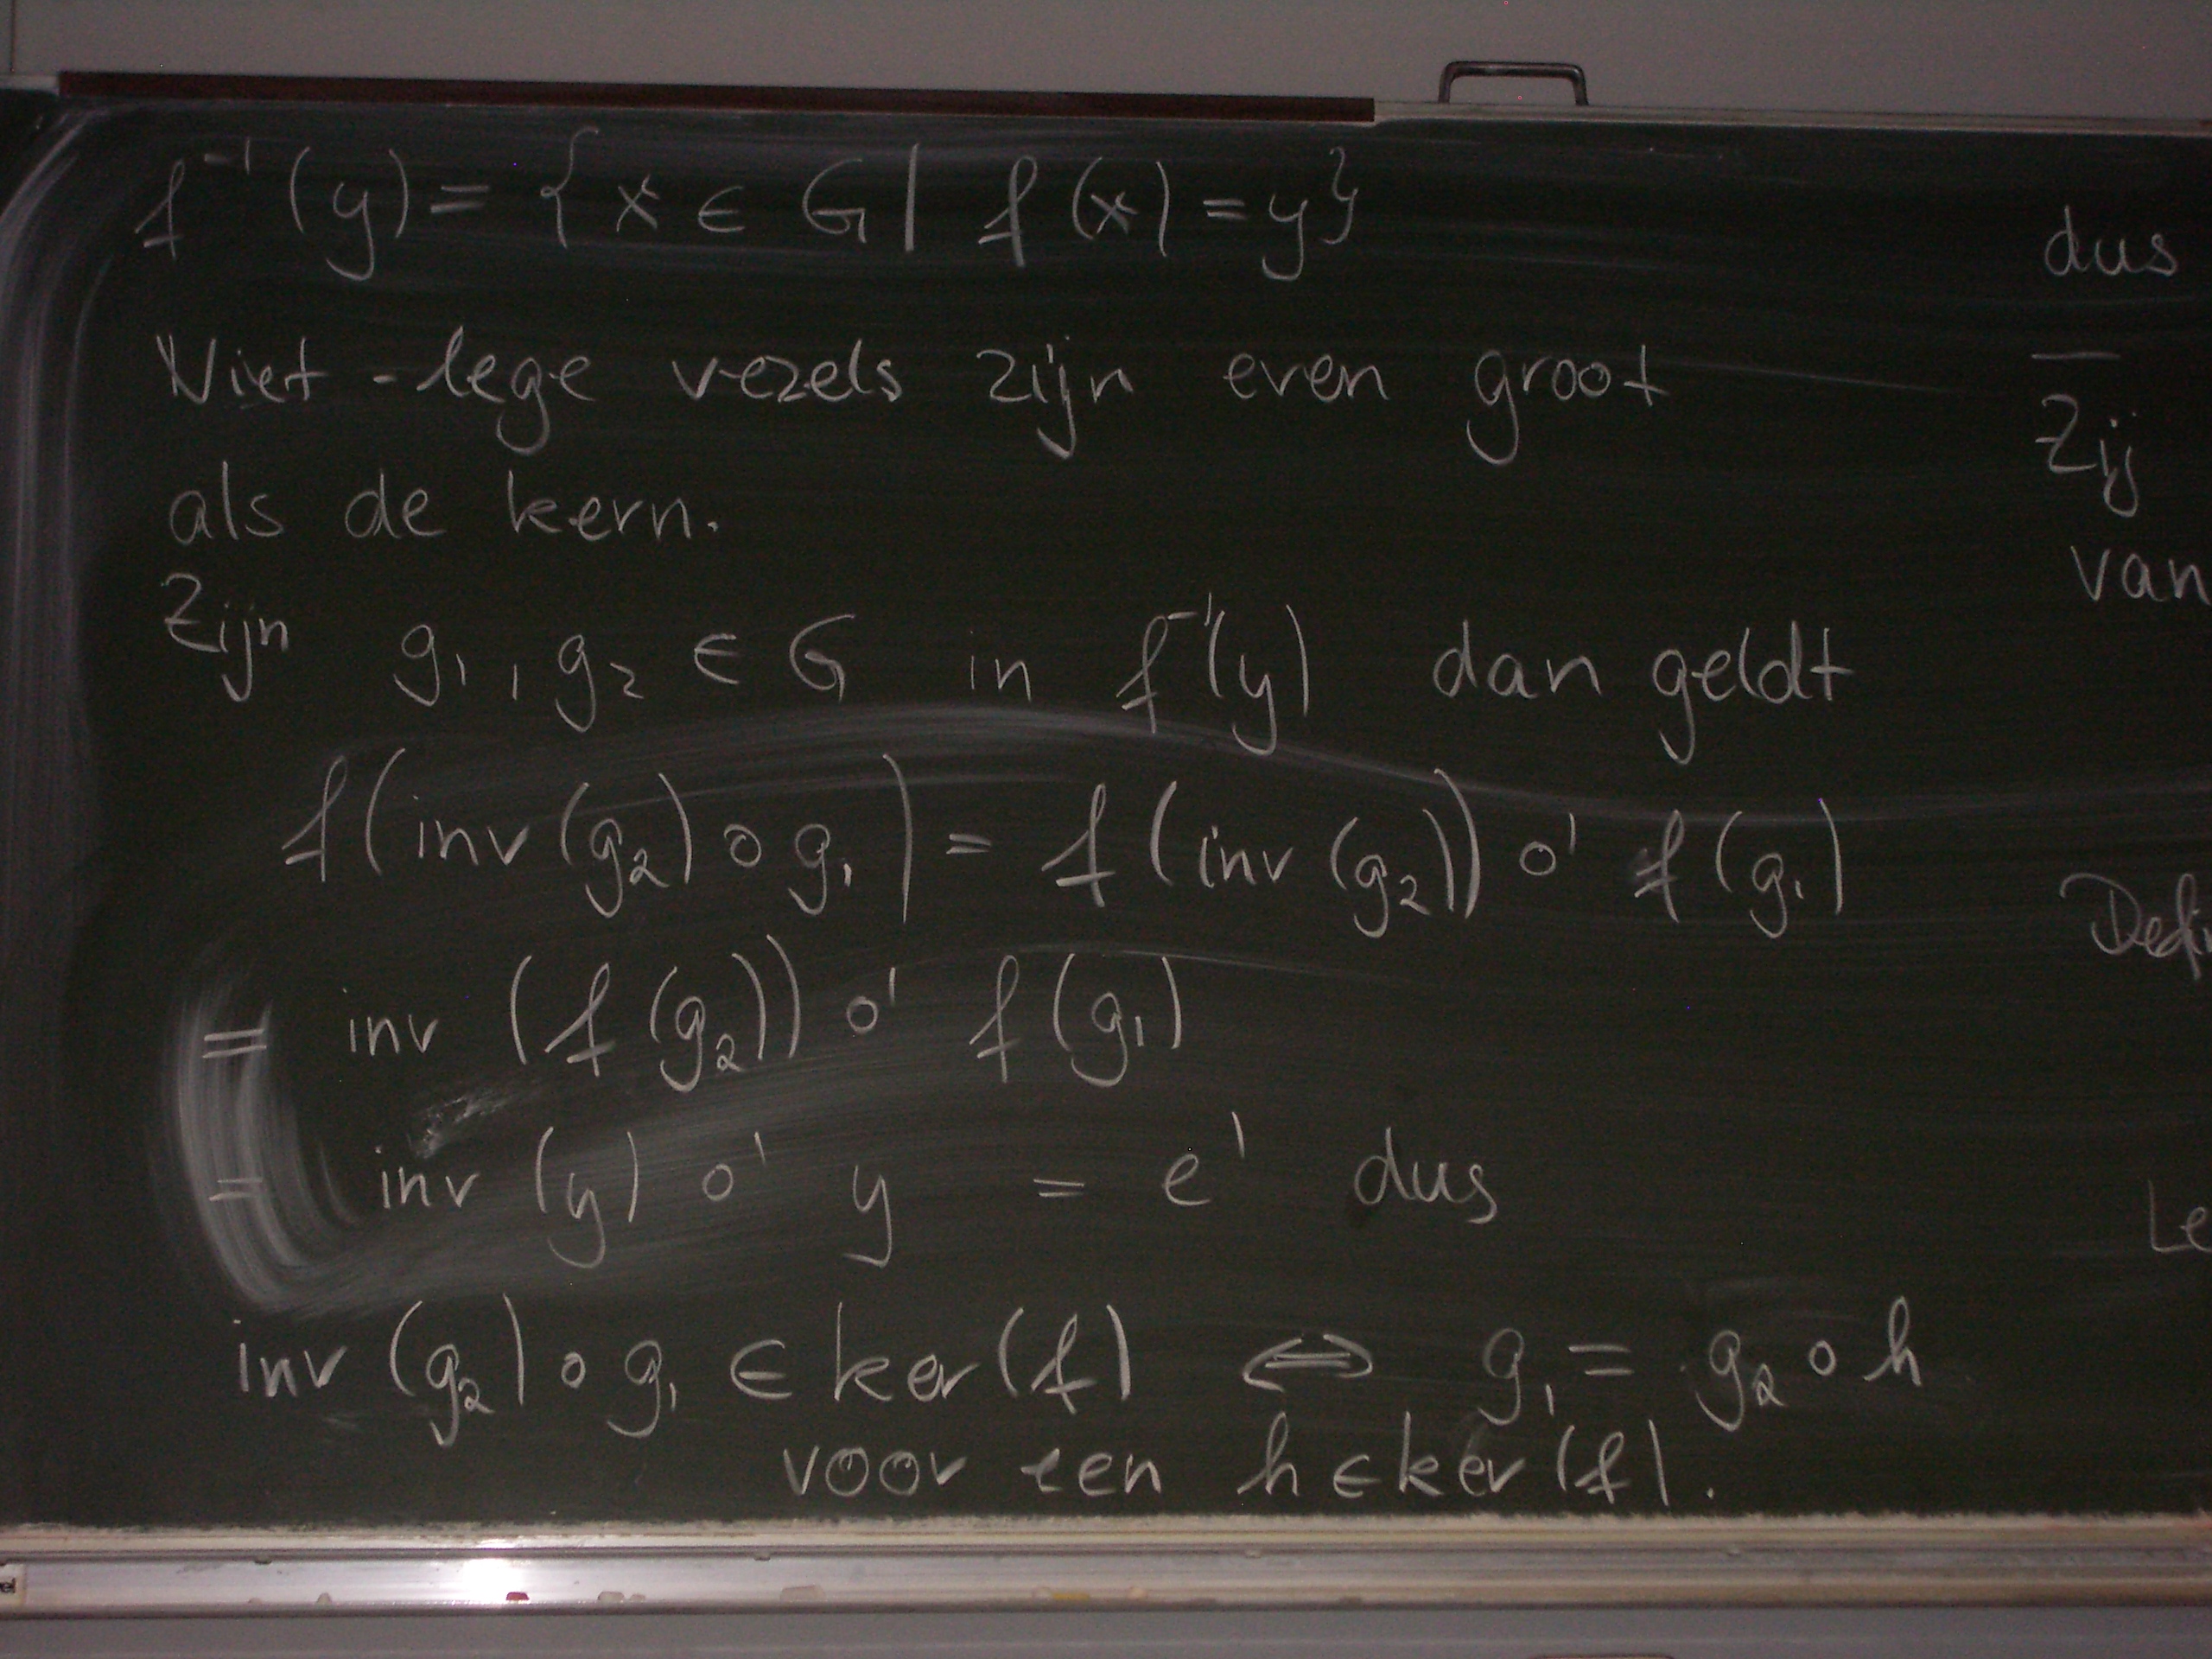 f⁻¹(y) = { x ∈ G | f(x) = y }
Niet-lege vezels zijn even groot
als de kern.
Zijn g₁, g₂ ∈ G in f⁻¹(y) dan geldt
f(inv(g₂) ∘ g₁) = f(inv(g₂)) ∘' f(g₁)
= inv (f(g₂)) ∘' f(g₁)
= inv (y) ∘' y = e' dus
inv (g₂) ∘ g₁ ∈ ker(f) ⇔ g₁ = g₂ ∘ h
voor een h ∈ ker(f).
dus
Zij
van
Defi
Le